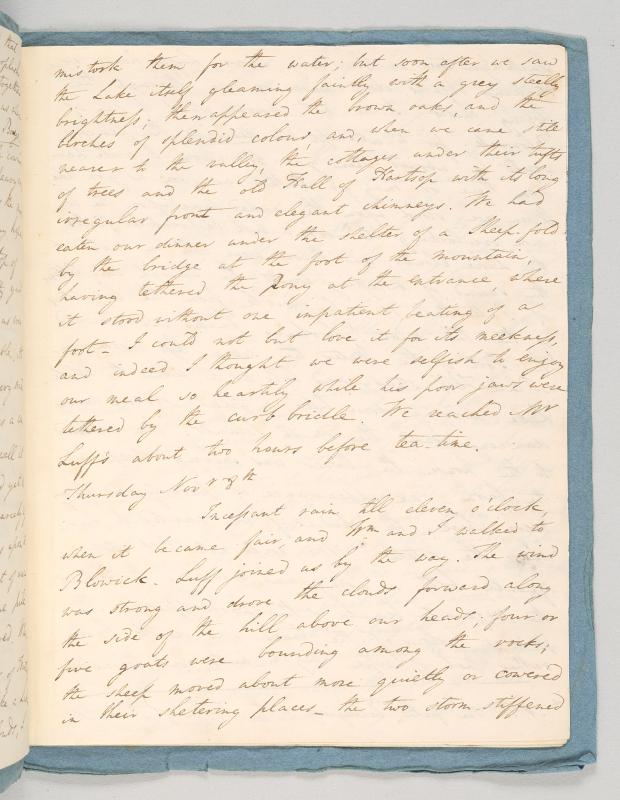 mistook them for the water; but soon after we saw
the Lake itself gleaming faintly with a grey steelly
brightness; then appeared the brown oaks, and the
birches of splendid colour, and, when we came still
nearer to the valley, the cottages under their tufts
of trees and the old Hall of Hartsop with its long
irregular front and elegant chimneys. We had
eaten our dinner under the shelter of a Sheep-fold
by the bridge at the foot of the mountain,
having tethered the Pony at the entrance, where
it stood without one impatient beating of a
foot_ I could not but love it for its meekness,
and indeed I thought we were selfish to enjoy
our meal so heartily while his poor jaws were
tethered by the curb bridle. We reached Mr
Luff's about two hours before tea-time.
Thursday Novr 8th
Incessant rain till eleven o'clock,
when it became fair, and Wm and I walked to
Blowick. Luff joined us by the way. The wind
was strong and drove the clouds forward along
the side of the hill above our heads; four or
five goats were bounding among the rocks;
the sheep moved about more quietly or cowered
in their sheltering places_ the two storm-stiffened